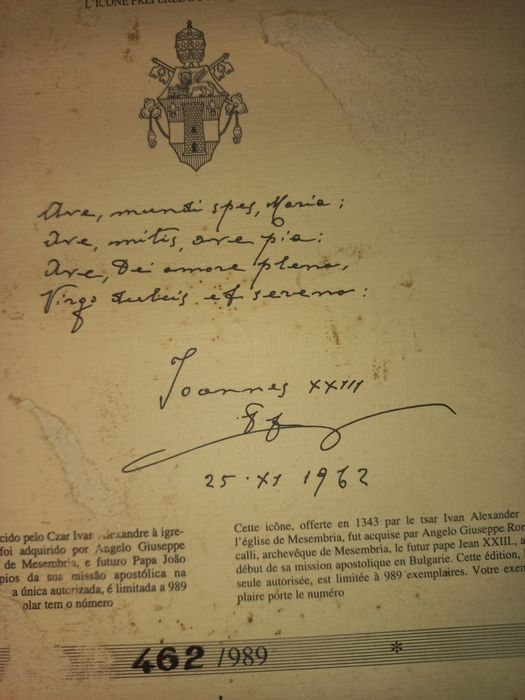 L'ICÔNE PRÉFÉRÉE DU
Ave, mundi spes, Maria;
Ave, mitis, ave pia:
Ave, Dei amore plena,
Virgo dulcis et serena:
Joannes XXIII
25 · XI 1962
cido pelo Czar Ivan Alexandre à igre-
foi adquirido por Angelo Giuseppe
de Mesembria, e futuro Papa João
pios da sua missão apostólica na
a única autorizada, é limitada a 989
plar tem o número
Cette icône, offerte en 1343 par le tsar Ivan Alexander
l'église de Mesembria, fut acquise par Angelo Giuseppe Ron
calli, archevêque de Mesembria, le futur pape Jean XXIII., a
début de sa mission apostolique en Bulgarie. Cette édition,
seule autorisée, est limitée à 989 exemplaires. Votre exem
plaire porte le numéro
462 /989 *